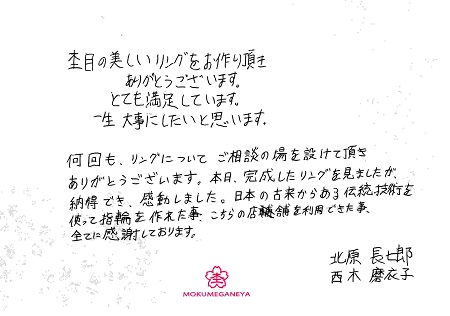 杢目の美しいリングをお作り頂き
ありがとうございます。
とても満足しています。
一生大事にしたいと思います。
何回も、リングについてご相談の場を設けて頂き
ありがとうございます。本日、完成したリングを見ましたが、
納得でき、感動しました。日本の古来からある伝統技術を
使って指輪を作れた事、こちらの店舗を利用できた事、
全てに感謝しております。
北原 長七郎
西木 磨衣子
MOKUMEGANEYA